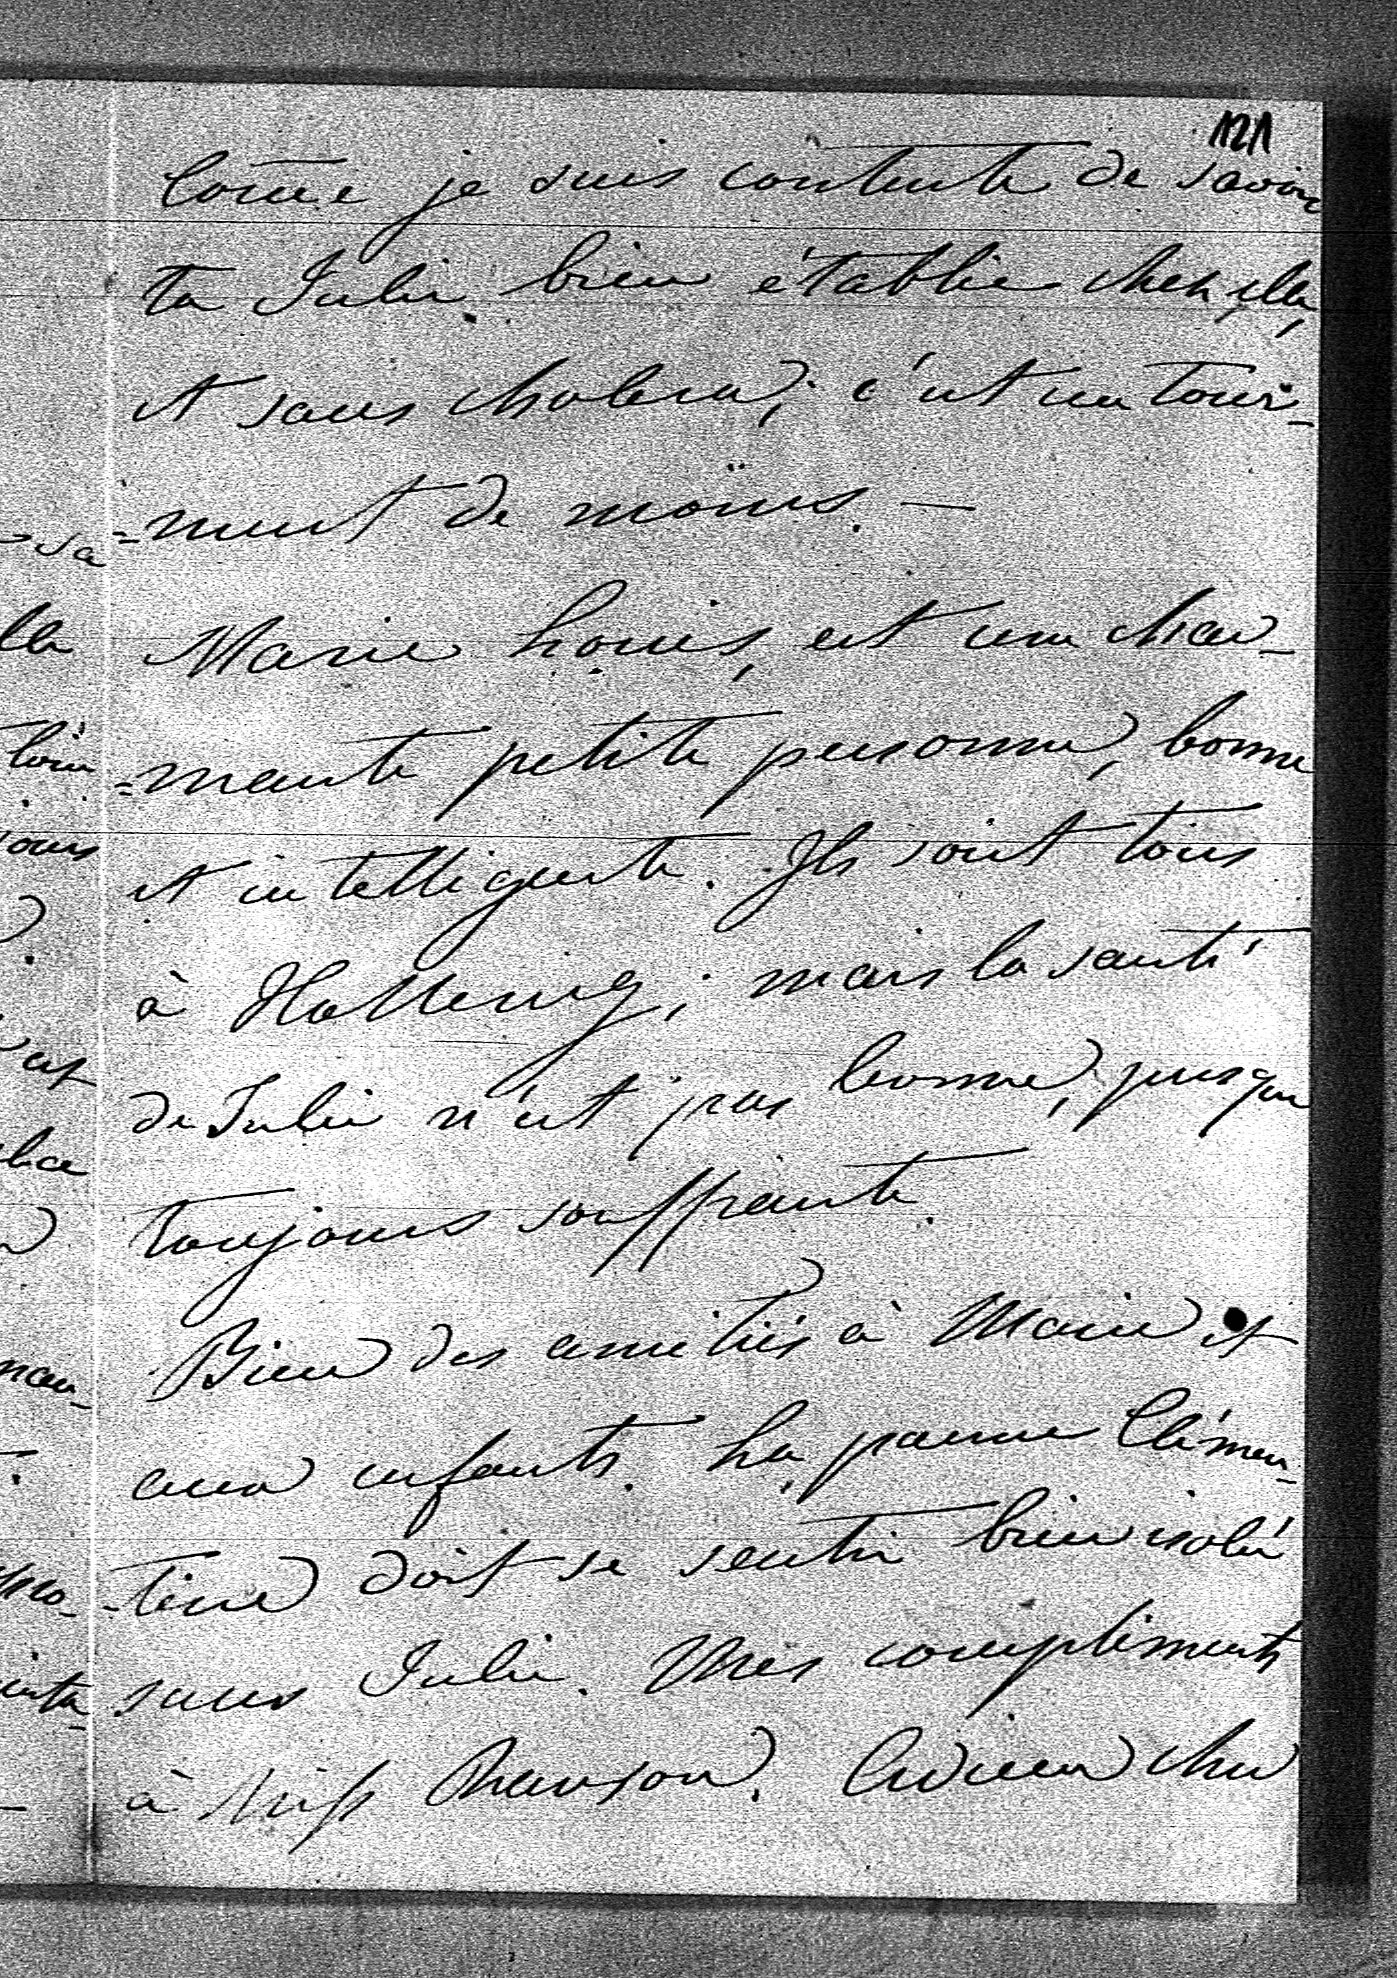 121
Come je suis contente de savoir
ta Julie bien établie chez elle,
et sans cholera; c'est un tour-
-ment de moins. —
Marie Louis, est une char-
-mante petite personne, bonne
et intelligente. Ils sont tous
à ; mais la santé
de Julie n'est pas bonne, presque
toujours souffrante.
Bien des amitiés à Marie et
aux enfants. La pauvre Clémen-
-tine doit se sentir bien isolée
sans Julie. Mes compliments
à Miss . Adieu cher